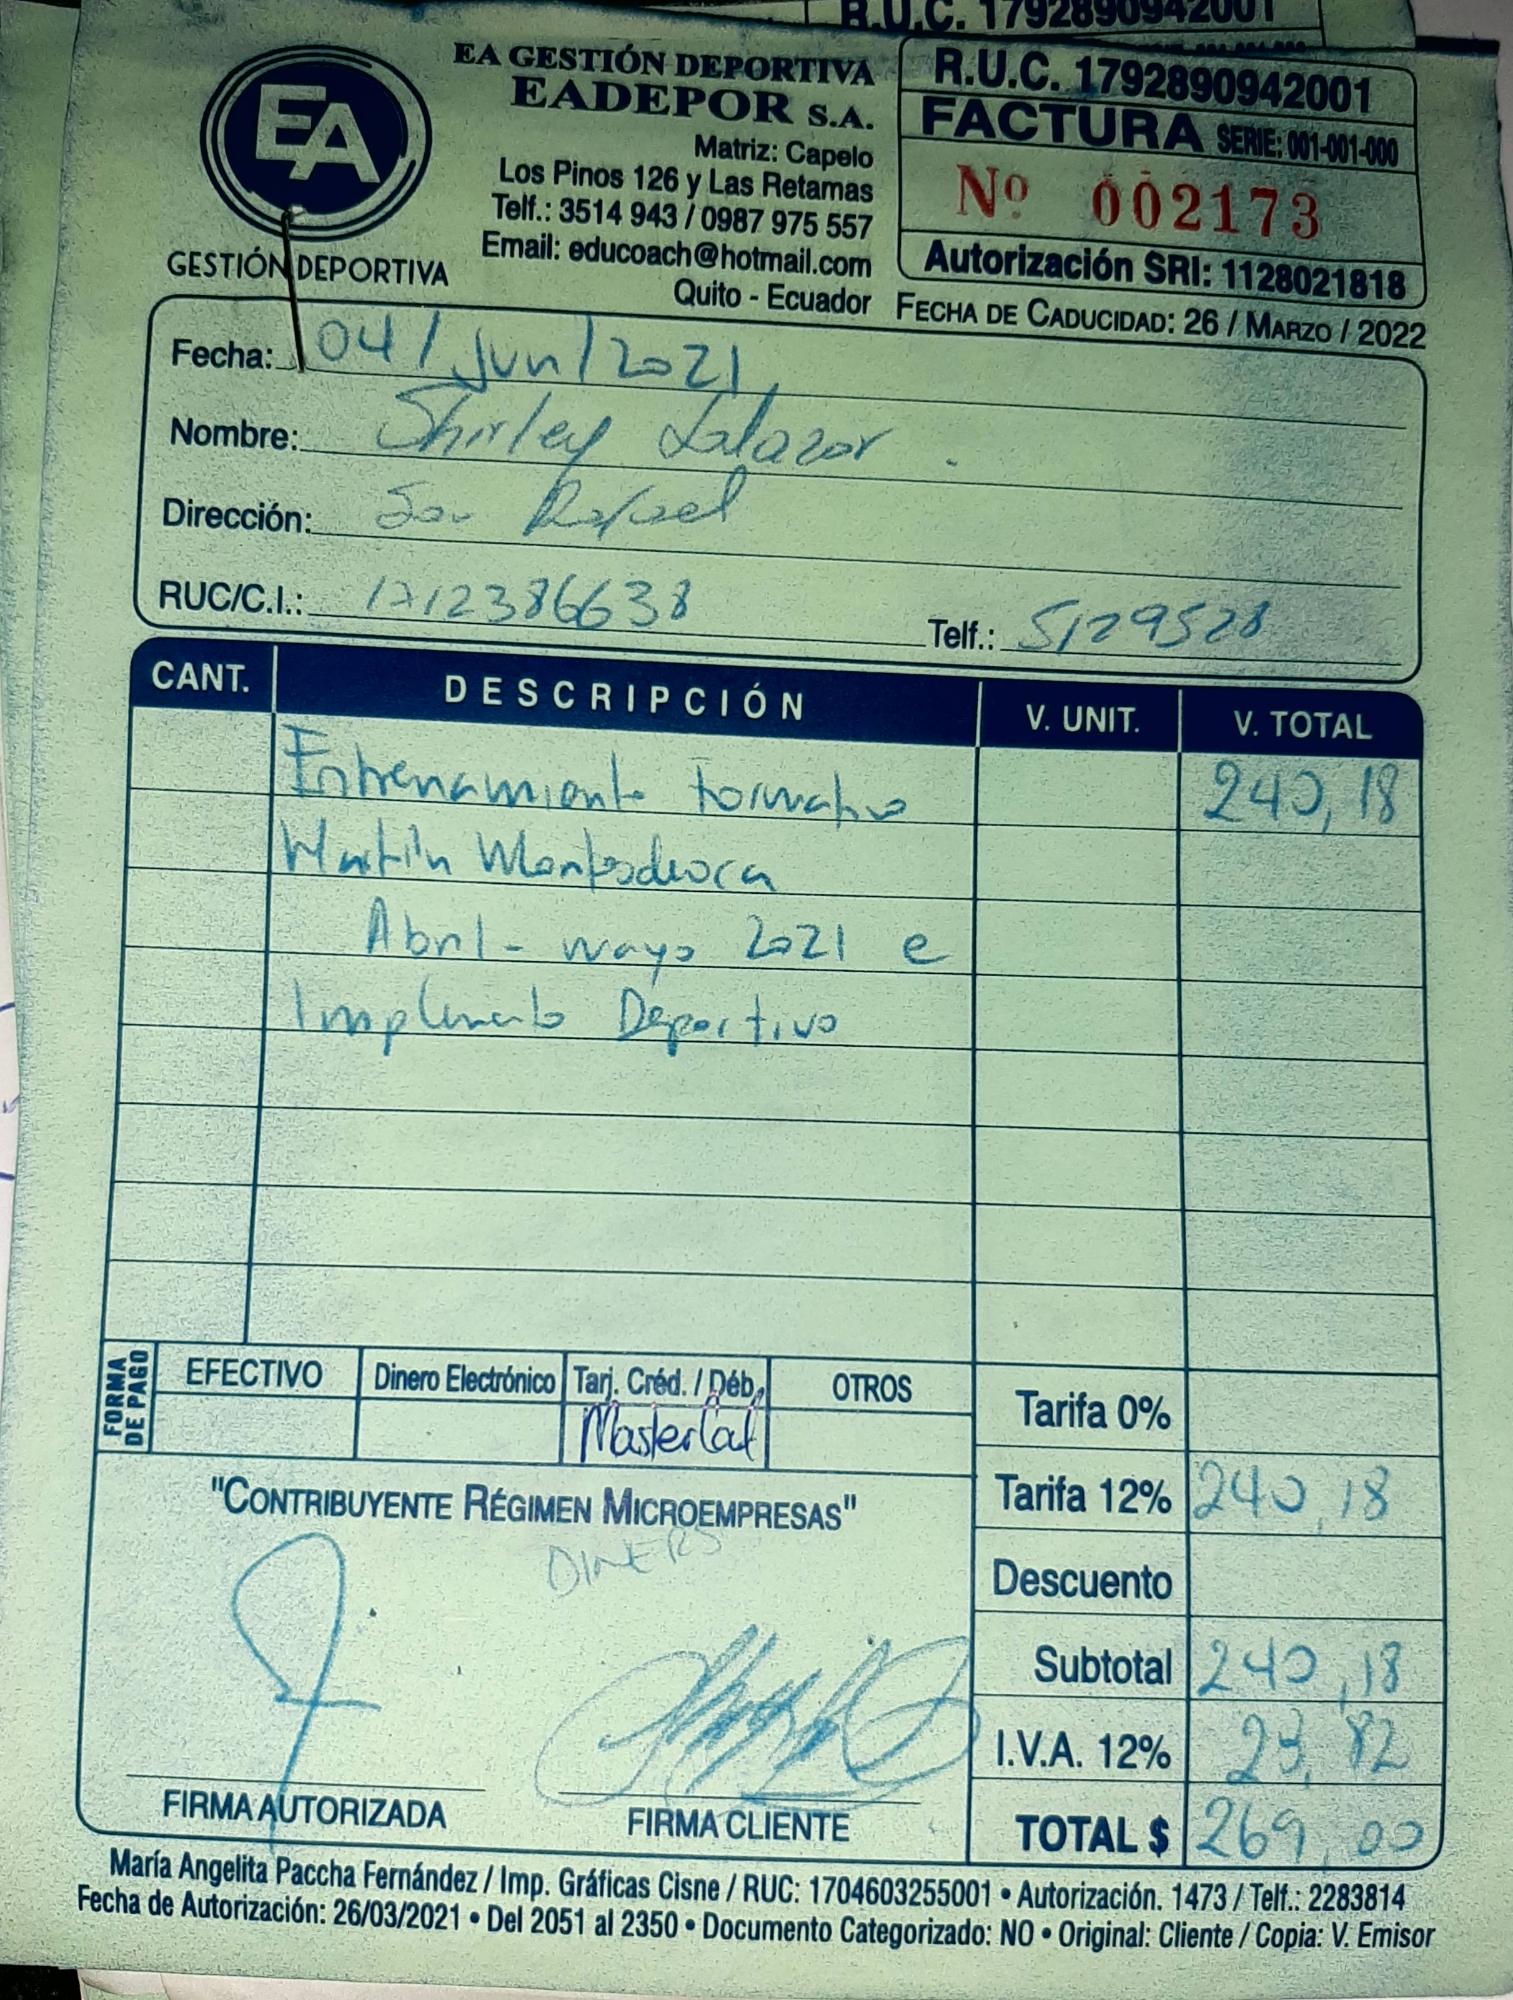 R.U.C. 1792890942001
EA
GESTIÓN DEPORTIVA
EA GESTIÓN DEPORTIVA
EADEPOR S.A.
Matriz: Capelo
Los Pinos 126 y Las Retamas
Telf.: 3514 943 / 0987 975 557
Email: educoach@hotmail.com
Quito - Ecuador
R.U.C. 1792890942001
FACTURA SERIE: 001-001-000
Nº 002173
Autorización SRI: 1128021818
FECHA DE CADUCIDAD: 26 / MARZO / 2022
Fecha: 04/Jun/2021
Nombre: Shirley Salazar.
Dirección: San Rafael
RUC/C.I.: 1712386638 Telf.: 5129528
CANT. DESCRIPCIÓN V. UNIT. V. TOTAL
Entrenamiento formativo 240,18
Martín Montesdeoca
Abril - mayo 2021 e
Implemento Deportivo
FORMA DE PAGO
EFECTIVO Dinero Electrónico Tarj. Créd. / Déb. OTROS
Tarifa 0%
"CONTRIBUYENTE RÉGIMEN MICROEMPRESAS"
Tarifa 12% 240,18
DINERS
Descuento
Subtotal 240,18
I.V.A. 12% 82
TOTAL $ 269,00
FIRMA AUTORIZADA FIRMA CLIENTE
María Angelita Paccha Fernández / Imp. Gráficas Cisne / RUC: 1704603255001 • Autorización. 1473 / Telf.: 2283814
Fecha de Autorización: 26/03/2021 • Del 2051 al 2350 • Documento Categorizado: NO • Original: Cliente / Copia: V. Emisor